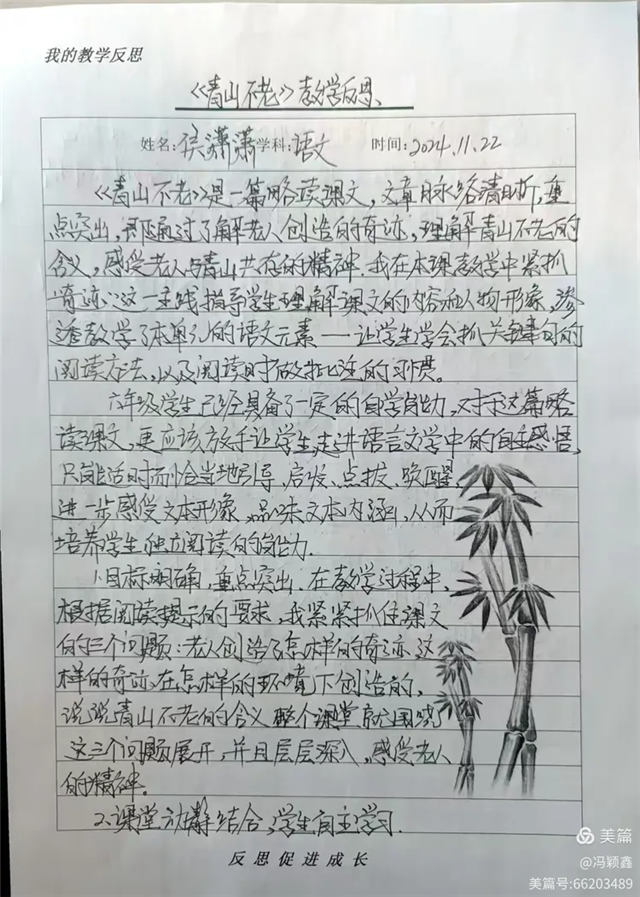 我的教学反思
《青山不老》教学反思
姓名:侯潇潇 学科:语文 时间:2024.11.22
《青山不老》是一篇略读课文,文章脉络清晰,重
点突出,都通过了解老人创造的奇迹,理解青山不老的
含义,感受老人与青山共存的精神.我在本课教学中紧抓
“奇迹”这一主线指导学生理解课文的内容和人物形象,渗
透教学了本单元的语文元素——让学生学会抓关键句的
阅读方法,以及阅读时做批注的习惯。
六年级学生已经具备了一定的自学能力,对于这篇略
读课文,更应该放手让学生走进语言文字中的自主感悟,
只能适时而恰当地引导、启发、点拔、唤醒,
进一步感受文本形象,品味文本内涵,从而
培养学生独立阅读的能力.
1.目标明确,重点突出.在教学过程中,
根据阅读提示的要求,我紧紧抓住课文
的三个问题:老人创造了怎样的奇迹,这
样的奇迹在怎样的环境下创造的,
说说青山不老的含义.整个课堂就围绕
这三个问题展开,并且层层深入,感受老人
的精神.
2.课堂动静结合,学生自主学习.
反思促进成长
美篇
@冯颖鑫
美篇号:66203489